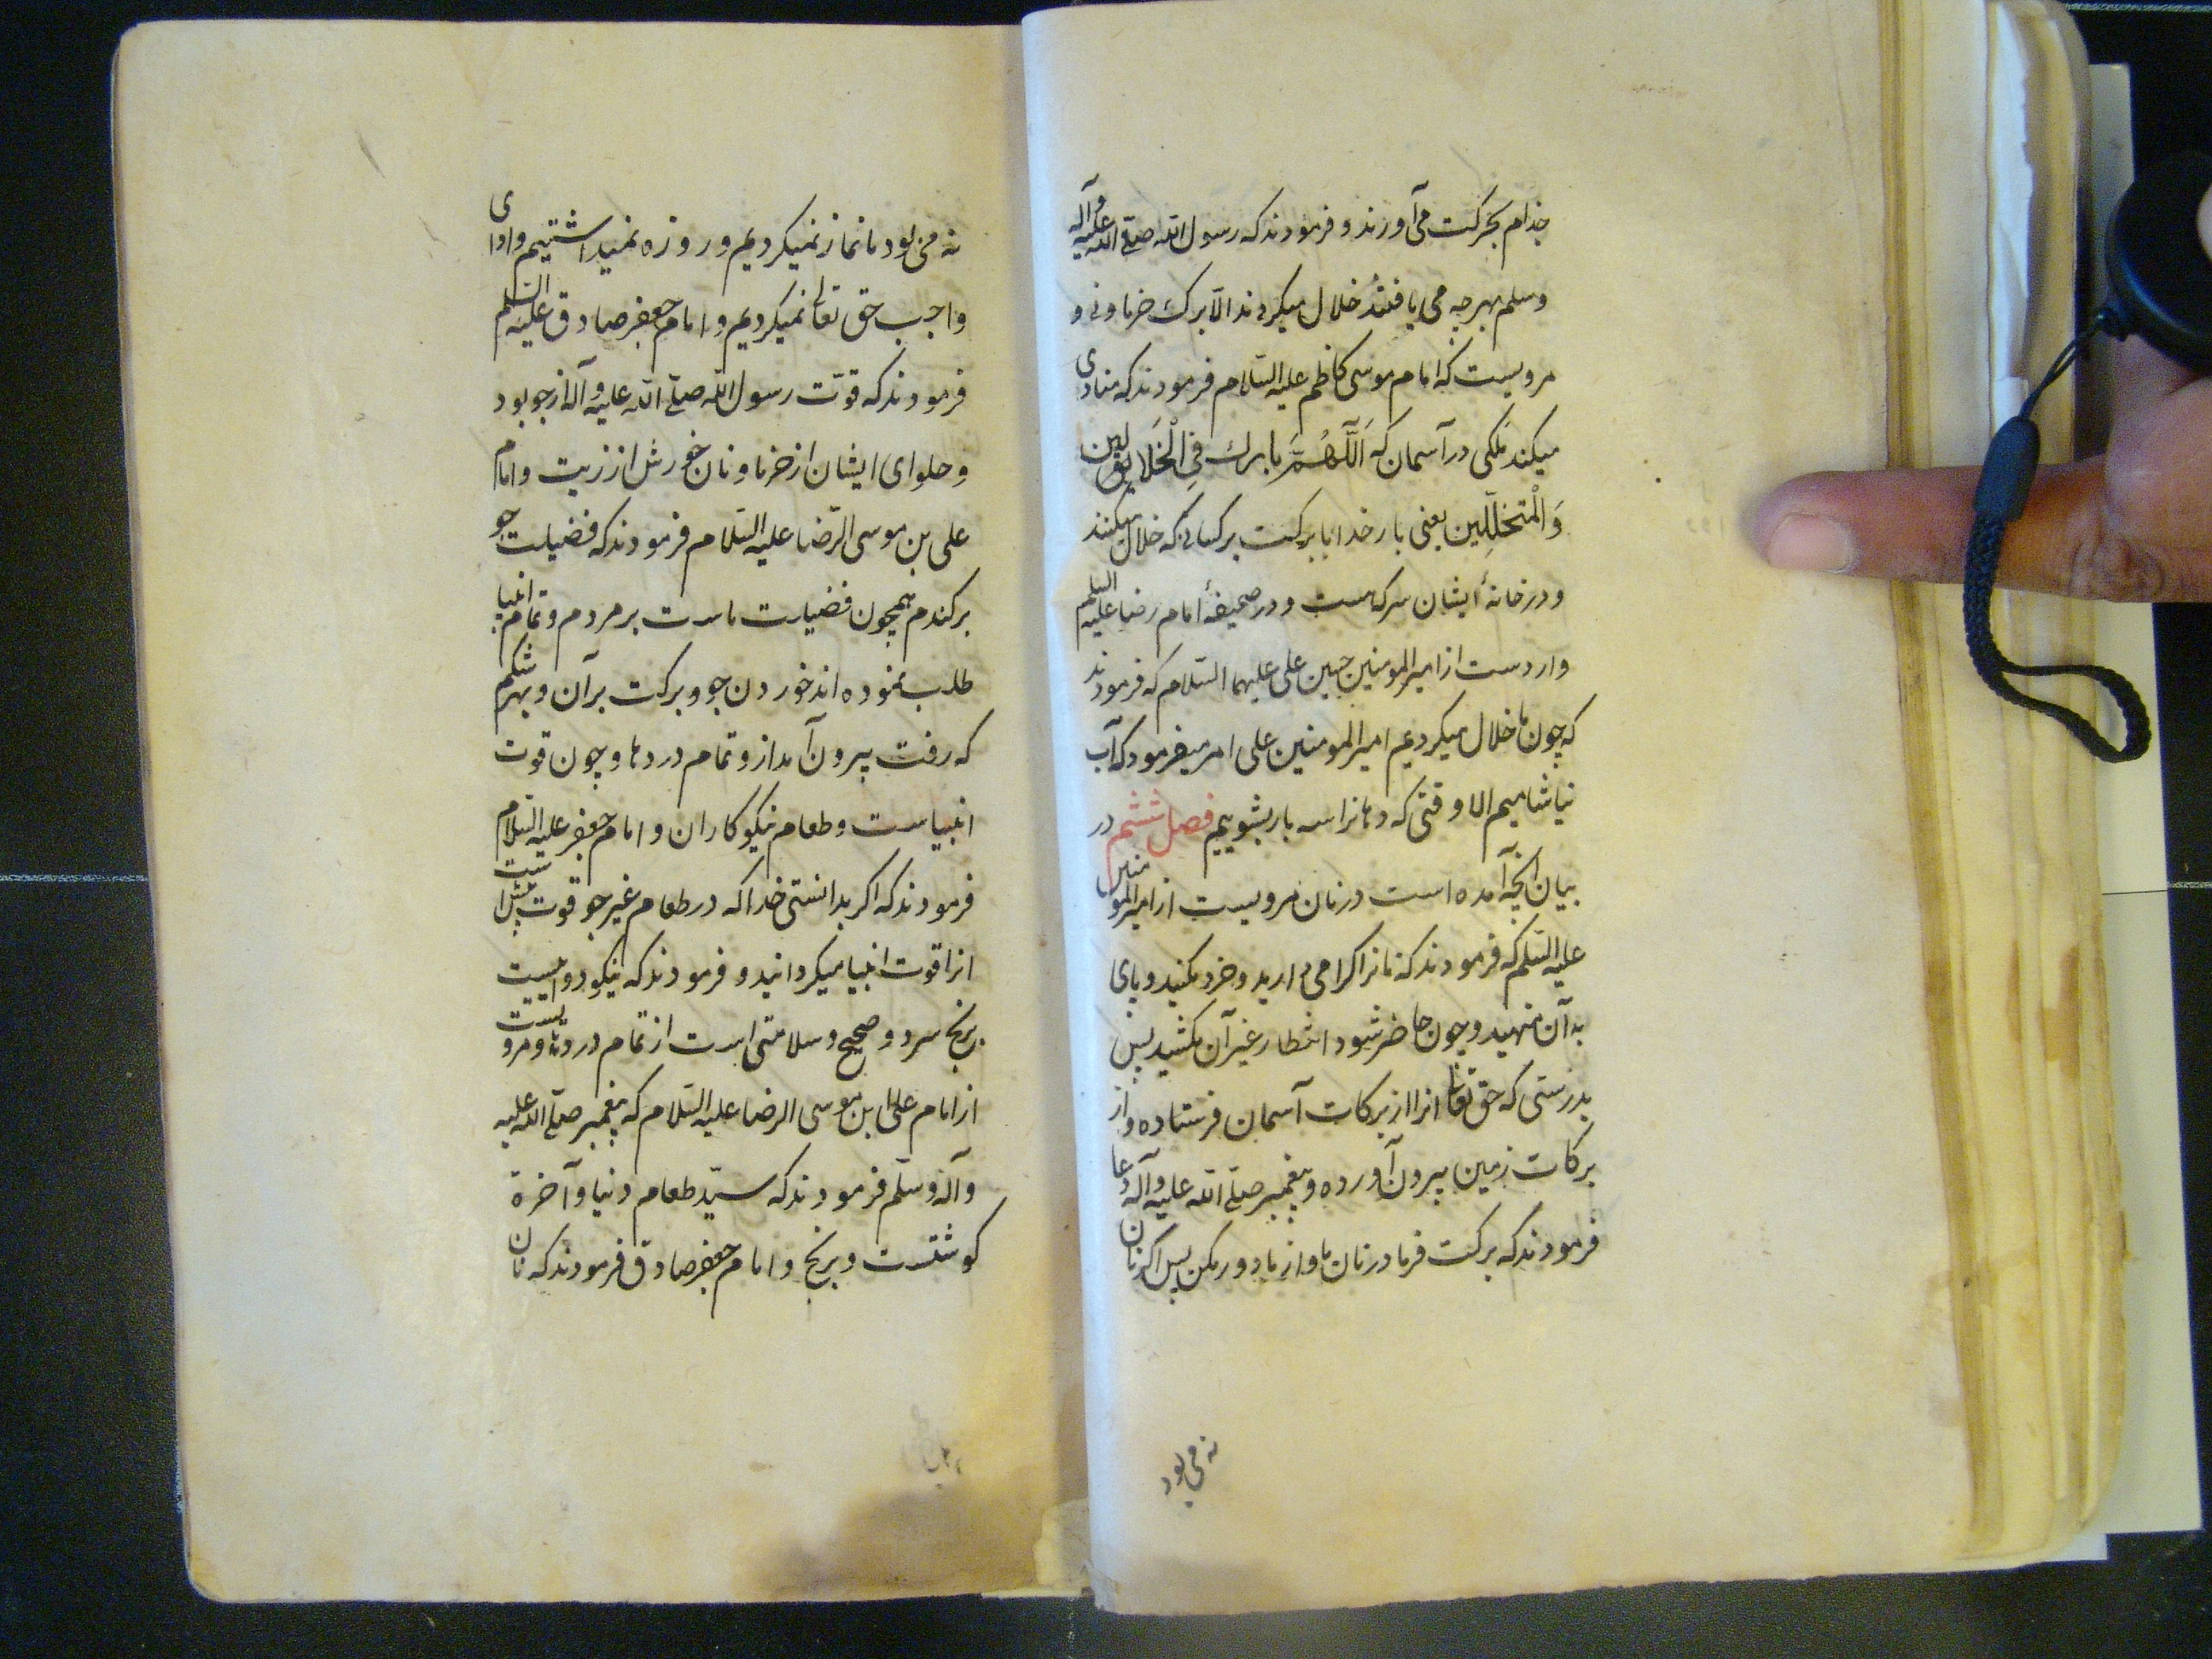 جذام بحرکت می‌آورند و فرمودند که رسول الله صلی الله علیه وآله
وسلم بهرچه می یافتند خلال میکردند الا برک خرما ونی و
مرویست که امام موسی کاظم علیه السّلام فرمودند که منادی
میکند ملکی در آسمان که اَللّهُمَّ بارک فِی الْخَلّالین
وَالْمُتخلِّلِین یعنی بار خدایا برکت بر کسانی که خلال میکنند
ودر خانهٔ ایشان سرکه هست ودر صحیفهٔ امام رضا علیه السلم
واردست از امیرالمومنین حسین علی علیهما السّلام که فرمودند
که چون ما خلال میکردیم امیرالمومنین علی امر میفرمود که آب
نیاشامیم الا وقتی که دهانرا سه بار بشوییم فصل ششم در
بیان آنچه آمده است در نان مرویست از امیرالمومنین
علیه السّلم که فرمودند که نانرا کرامی دارید و خرد مکنید و پای
به آن منهید وچون حاضر شود انتظار غیر آن مکشید پس
بدرستی که حق تعالی انرا از برکات آسمان فرستاده واز
برکات زمین بیرون آورده وپیغمبر صلّی الله علیه وآله دعا
فرمودند که برکت فرما در نان ما واز ما دور مکن پس اکر نان
نه می بود
نه می بود ما نماز نمیکردیم وروزه نمیداشتیم وادای
واجب حق تعالی نمیکردیم وامام جعفر صادق علیه السّلم
فرمودند که قوّت رسول الله صلّی الله علیه وآله از جو بود
وحلوای ایشان از خرما ونان خورش از زیت وامام
علی بن موسی الرّضا علیه السّلام فرمودند که فضیلت جو
برکندم همچون فضیلت ماست بر مردم وتمام انبیا
طلب نموده اند خوردن جو وبرکت برآن وبهر شکم
که رفت بیرون آمد ازو تمام دردها وچون قوت
انبیاست وطعام نیکوکاران وامام جعفر علیه السّلام
فرمودند که اکر بدانستی خدا که در طعام غیر جو قوت بیشتر است
انرا قوت انبیا میکردانید وفرمودند که نیکو دواییست
برنج سرد وصحیح وسلامتی است از تمام دردها ومرویست
از امام علی ابن موسی الرضا علیه السّلام که پیغمبر صلّی الله علیه
وآله وسّلم فرمودند که سیّد طعام دنیا وآخرة
کوشتست وبرنج وامام جعفر صادق فرمودند که نان